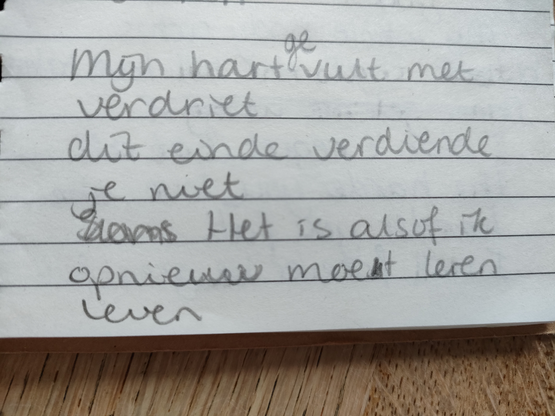 Mijn hart gevult met
verdriet
dit einde verdiende
je niet
Het is alsof ik
opnieuw moet leren
leven